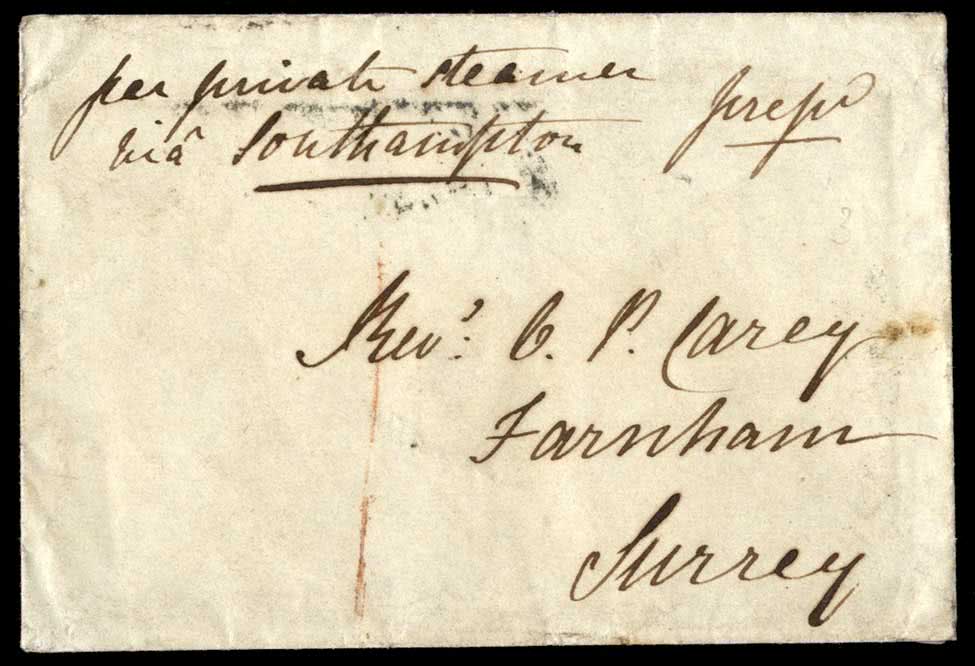 per private steamer
viâ Southampton
prepd
Revd. C. P. Carey
Farnham
Surrey